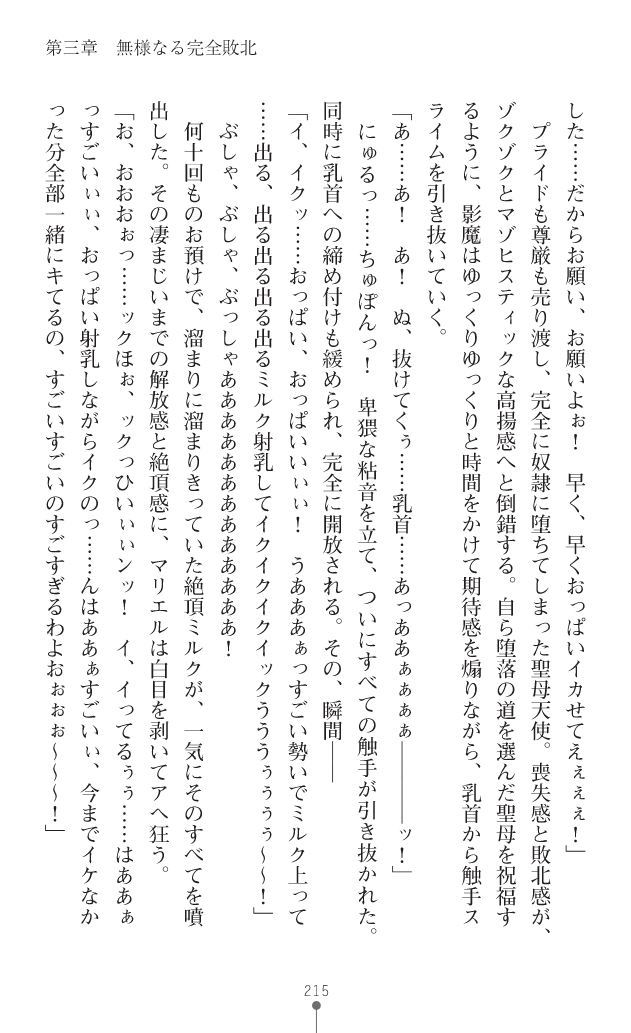 第三章　無様なる完全敗北
した……だからお願い、お願いよぉ！　早く、早くおっぱいイカせてえぇぇぇ！」
　プライドも尊厳も売り渡し、完全に奴隷に堕ちてしまった聖母天使。喪失感と敗北感が、
ゾクゾクとマゾヒスティックな高揚感へと倒錯する。自ら堕落の道を選んだ聖母を祝福す
るように、影魔はゆっくりゆっくりと時間をかけて期待感を煽りながら、乳首から触手ス
ライムを引き抜いていく。
「あ……あ！　あ！　ぬ、抜けてくぅ……乳首……あっああぁぁぁぁ――――ッ！」
　にゅるっ……ちゅぽんっ！　卑猥な粘音を立て、ついにすべての触手が引き抜かれた。
同時に乳首への締め付けも緩められ、完全に開放される。その、瞬間――
「イ、イクッ……おっぱい、おっぱいいいぃぃ！　うあああぁっすごい勢いでミルク上って
……出る、出る出る出る出るミルク射乳してイクイクイクイックうううぅぅぅぅ～～！」
　ぶしゃ、ぶしゃ、ぶっしゃあああああああああああああ！
　何十回ものお預けで、溜まりに溜まりきっていた絶頂ミルクが、一気にそのすべてを噴
出した。その凄まじいまでの解放感と絶頂感に、マリエルは白目を剥いてアヘ狂う。
「お、おおおぉっ……ックほぉ、ックっひいぃぃンッ！　イ、イってるぅぅ……はああぁ
っすごいぃぃ、おっぱい射乳しながらイクのっ……んはああぁすごいぃ、今までイケなか
った分全部一緒にキてるの、すごいすごいのすごすぎるわよおぉぉぉ～～～！」
215